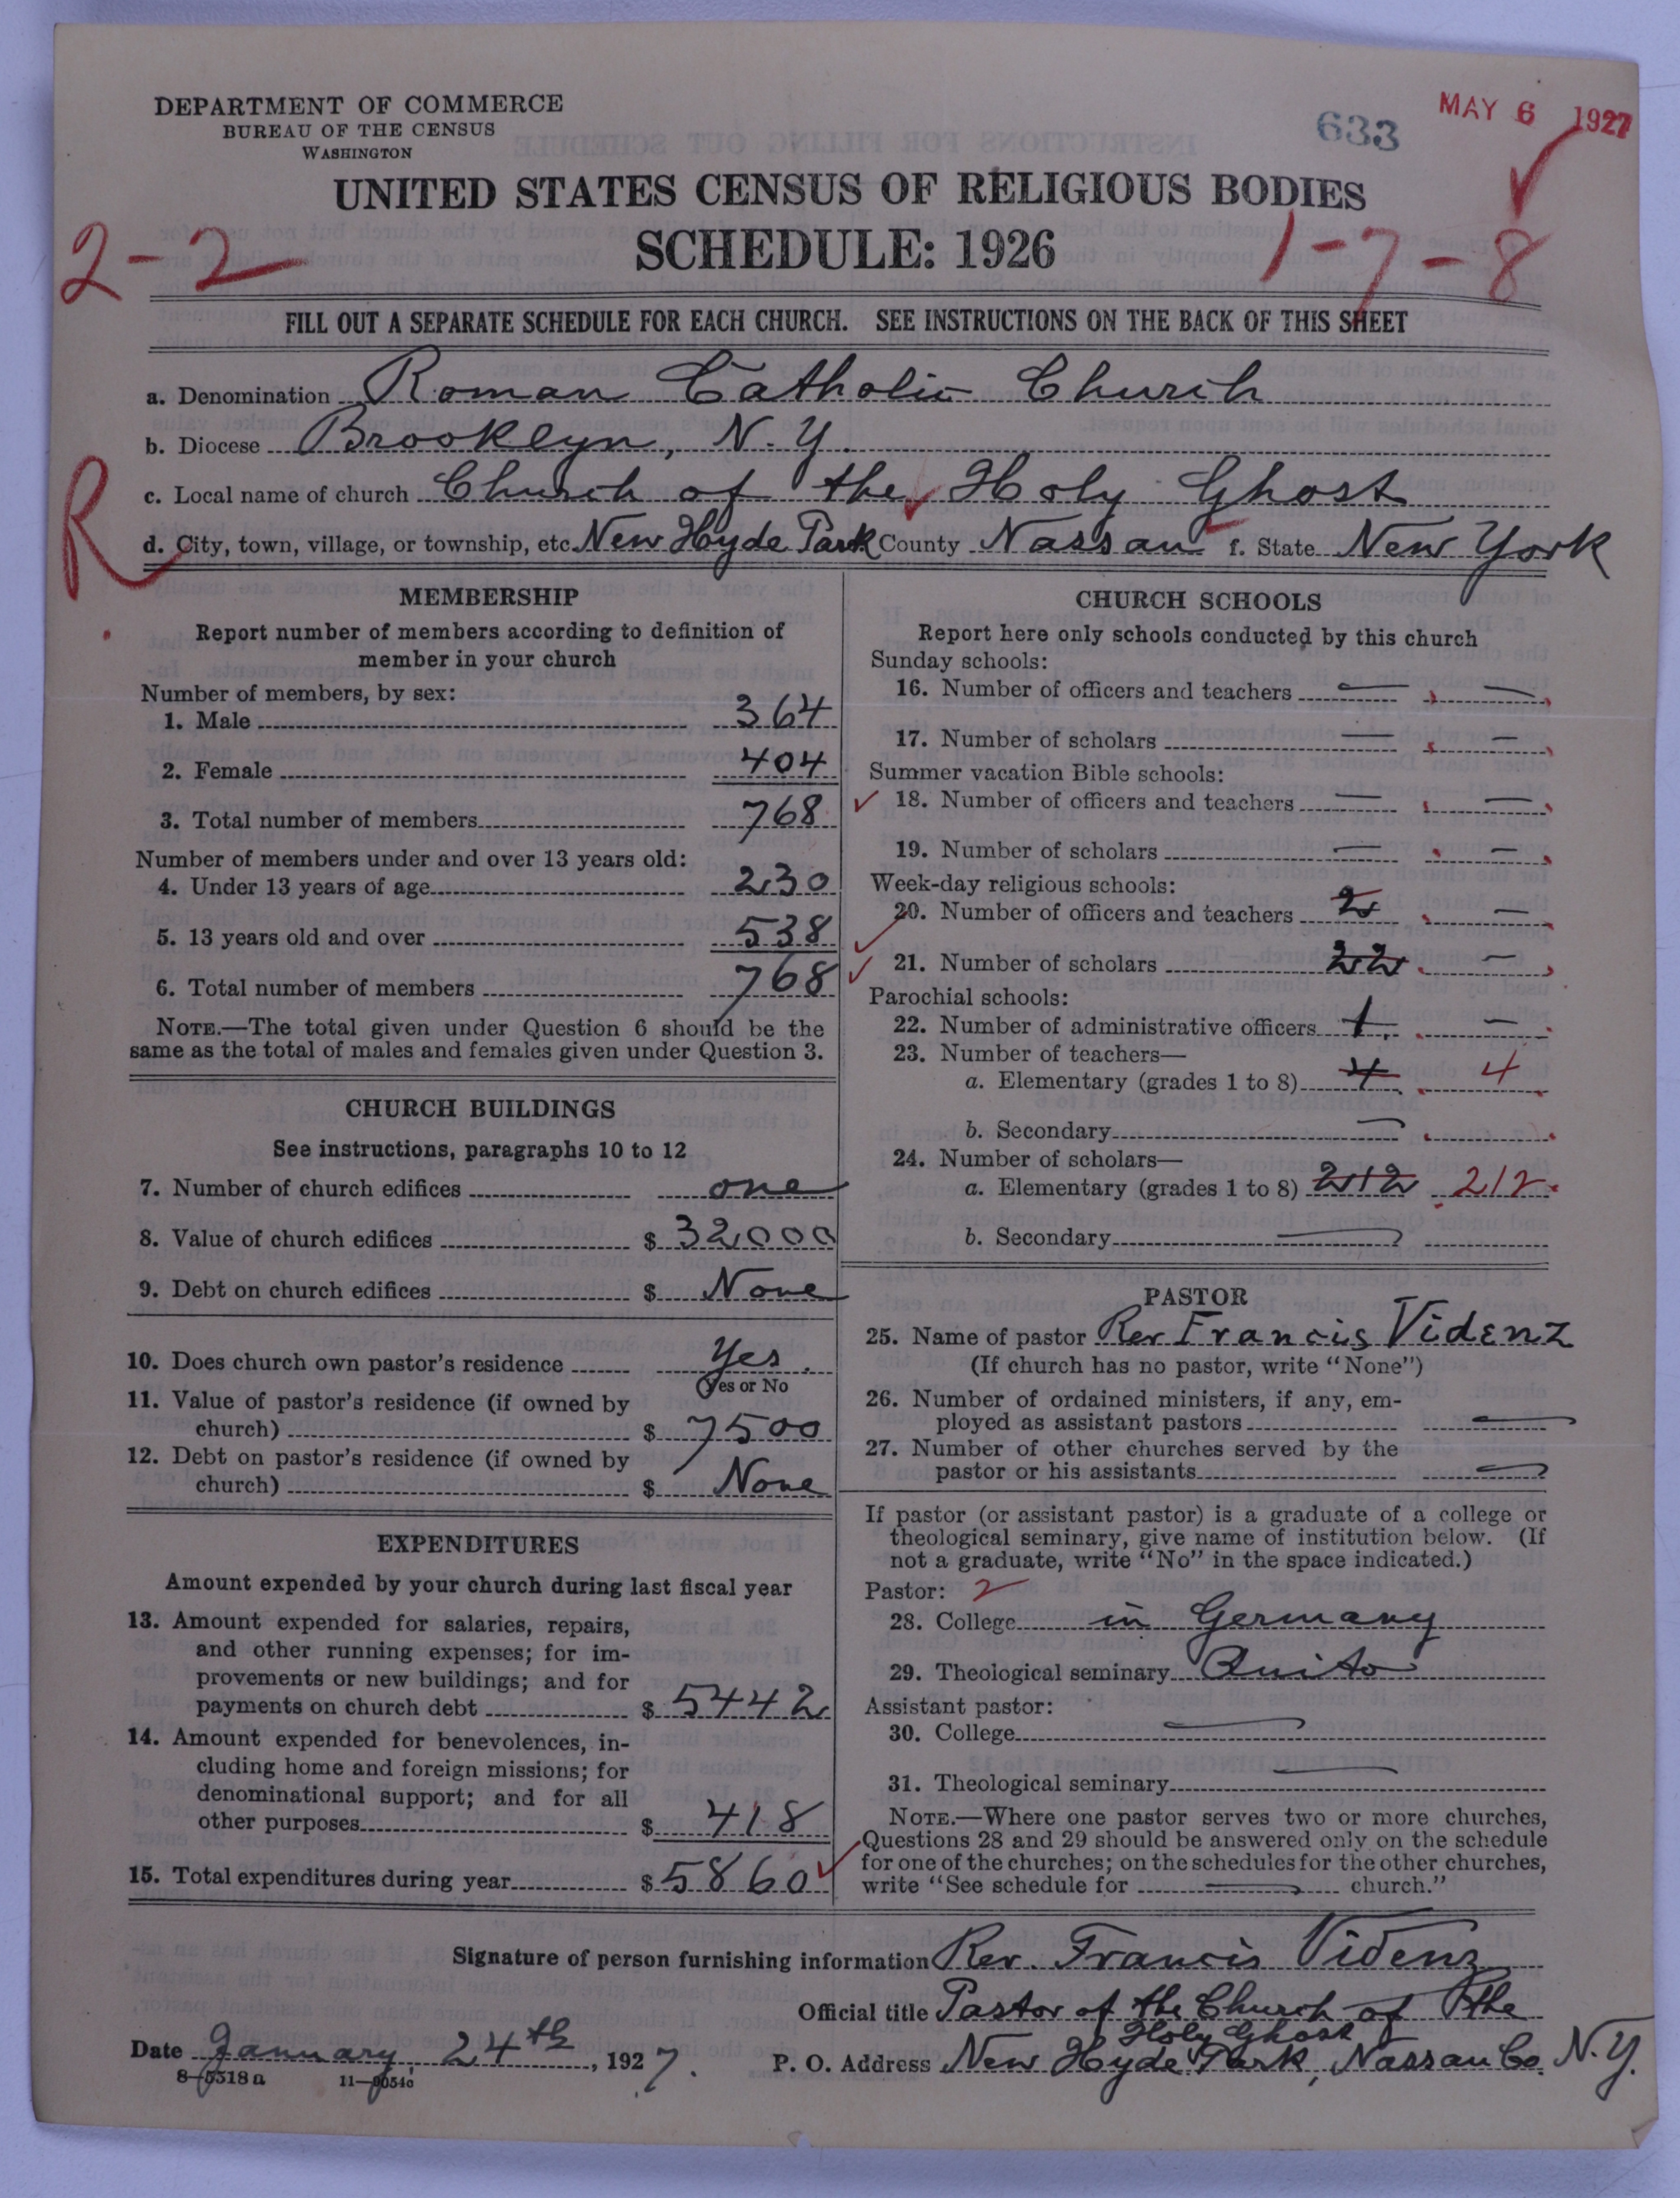 DEPARTMENT OF COMMERCE
BUREAU OF THE CENSUS
WASHINGTON
633
MAY 6 1927
UNITED STATES CENSUS OF RELIGIOUS BODIES
SCHEDULE: 1926
2-2
1-7-8
FILL OUT A SEPARATE SCHEDULE FOR EACH CHURCH. SEE INSTRUCTIONS ON THE BACK OF THIS SHEET
a. Denomination Roman Catholic Church
b. Diocese Brooklyn, N.Y.
c. Local name of church Church of the Holy Ghost
R
d. City, town, village, or township, etc. New Hyde Park County Nassau f. State New York
MEMBERSHIP
Report number of members according to definition of
member in your church
Number of members, by sex:
1. Male 364
2. Female 404
3. Total number of members 768
Number of members under and over 13 years old:
4. Under 13 years of age 230
5. 13 years old and over 538
6. Total number of members 768
NOTE.—The total given under Question 6 should be the
same as the total of males and females given under Question 3.
CHURCH BUILDINGS
See instructions, paragraphs 10 to 12
7. Number of church edifices one
8. Value of church edifices $ 32000
9. Debt on church edifices $ None
10. Does church own pastor's residence Yes.
(Yes or No
11. Value of pastor's residence (if owned by
church) $ 7500
12. Debt on pastor's residence (if owned by
church) $ None
EXPENDITURES
Amount expended by your church during last fiscal year
13. Amount expended for salaries, repairs,
and other running expenses; for im-
provements or new buildings; and for
payments on church debt $ 5442
14. Amount expended for benevolences, in-
cluding home and foreign missions; for
denominational support; and for all
other purposes $ 418
15. Total expenditures during year $ 5860
CHURCH SCHOOLS
Report here only schools conducted by this church
Sunday schools:
16. Number of officers and teachers — —
17. Number of scholars — —
Summer vacation Bible schools:
18. Number of officers and teachers — —
19. Number of scholars — —
Week-day religious schools:
20. Number of officers and teachers 2 —
21. Number of scholars 22 —
Parochial schools:
22. Number of administrative officers 1 —
23. Number of teachers—
a. Elementary (grades 1 to 8) 4 4
b. Secondary —
24. Number of scholars—
a. Elementary (grades 1 to 8) 212 212
b. Secondary —
PASTOR
25. Name of pastor Rev Francis Videnz
(If church has no pastor, write "None")
26. Number of ordained ministers, if any, em-
ployed as assistant pastors —
27. Number of other churches served by the
pastor or his assistants —
If pastor (or assistant pastor) is a graduate of a college or
theological seminary, give name of institution below. (If
not a graduate, write "No" in the space indicated.)
Pastor: 2
28. College in Germany
29. Theological seminary Quito
Assistant pastor:
30. College —
31. Theological seminary —
NOTE.—Where one pastor serves two or more churches,
Questions 28 and 29 should be answered only on the schedule
for one of the churches; on the schedules for the other churches,
write "See schedule for — church."
Signature of person furnishing information Rev. Francis Videnz
Official title Pastor of the Church of the
Holy Ghost
Date January, 24th, 1927.
P. O. Address New Hyde Park, Nassau Co. N.Y.
8—5518a 11—9054c